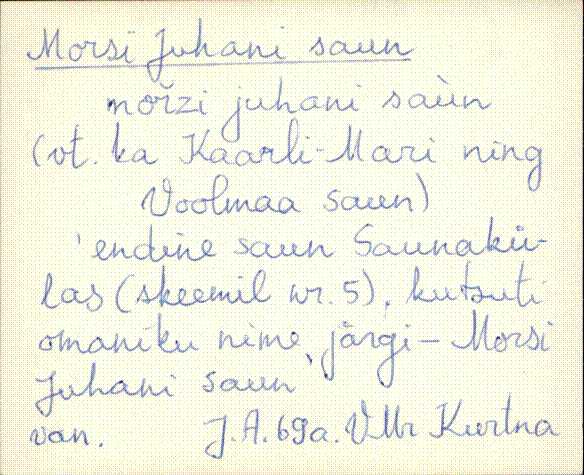 Morsi Juhani saun
mořzi juhani saùn
(vt. ka Kaarli-Mari ning
Voolmaa saun)
'endine saun Saunakü-
las (skeemil nr. 5), kutsuti
omaniku nime järgi – Morsi
Juhani saun'
van. J.A. 69a. VMr Kurtna